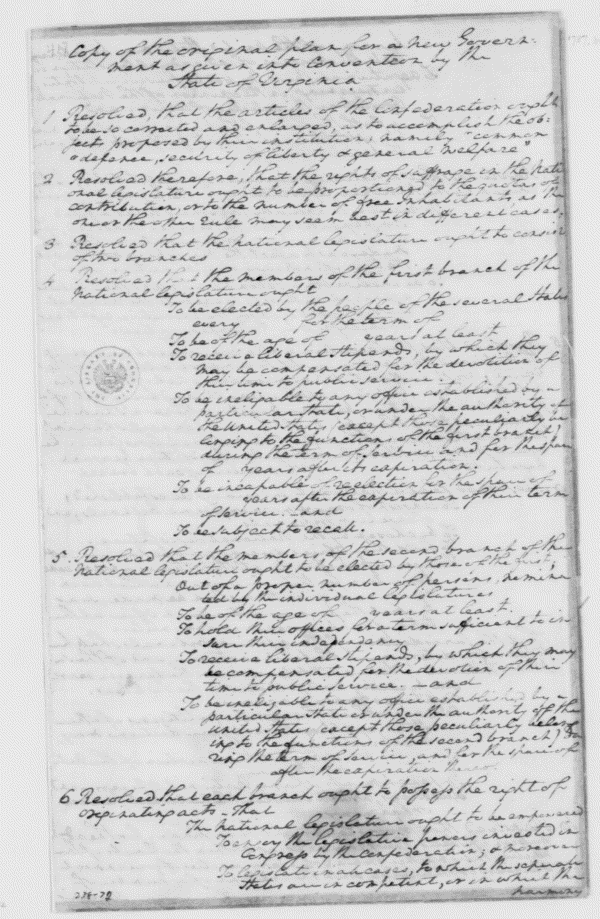 Copy of the original plan for a new Govern-
ment as given into Convention by the
State of Virginia
1 Resolved, that the articles of the Confederation ought
to be so corrected and enlarged, as to accomplish the ob-
jects proposed by their institution; namely "common
defence, security of liberty & general welfare"
2 Resolved therefore, that the rights of suffrage in the Nati
onal legislature ought to be proportioned to the quotas of
contribution, or to the number of free Inhabitants as the
one or the other rule may seem best in different cases,
3 Resolved that the national legislature ought to consist
of two branches
4 Resolved that the members of the first branch of the
National legislature ought
To be elected by the people of the several States
every for the term of
To be of the age of years at least
To receive liberal stipends, by which they
may be compensated for the devotion of
their time to public service.
To be ineligable to any office established by a
particular State, or under the authority of
the United States (except those peculiarly be
longing to the functions of the first branch)
during the term of service and for the space
of years after its expiration.
To be incapable of reelection for the space of
years after the expiration of their term
of service and
To be subject to recall.
5. Resolved that the members of the second branch of the
National legislature ought to be elected by those of the first,
Out of a proper number of persons nomina
ted by the individual legislatures
To be of the age of years at least.
To hold their offices for a term sufficient to in
sure their independency
To receive liberal stipends, by which they may
be compensated for the devotion of their
time to public service. and
To be ineligable to any office established by a
particular State or under the authority of the
United States (except those peculiarly belong
ing to the functions of the second branch) du
ring the term of service, and for the space of
after the expiration
6 Resolved that each branch ought to possess the right of
originating acts - that
The national legislature ought to be empowered
To enjoy the legislative powers invested in
Congress by the Confederation; & moreover
To legislate in all cases, to which the seperate
States are incompetent, or in which the
harmony